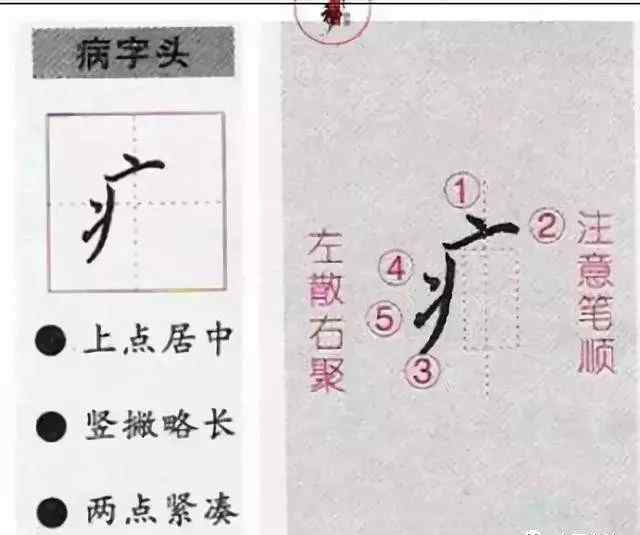 病字头
疒
上点居中
竖撇略长
两点紧凑
左散右聚
①
②
④
⑤
③
疒
注意笔顺